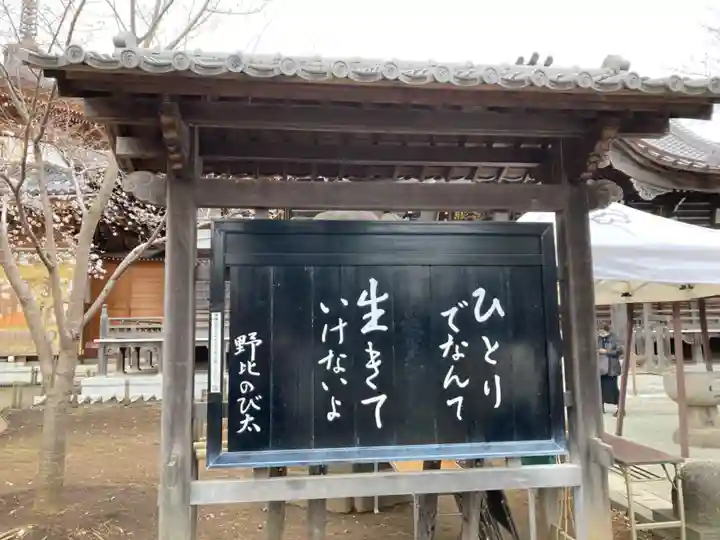 ひとり
でなんて
生きて
いけないよ
野比のび太